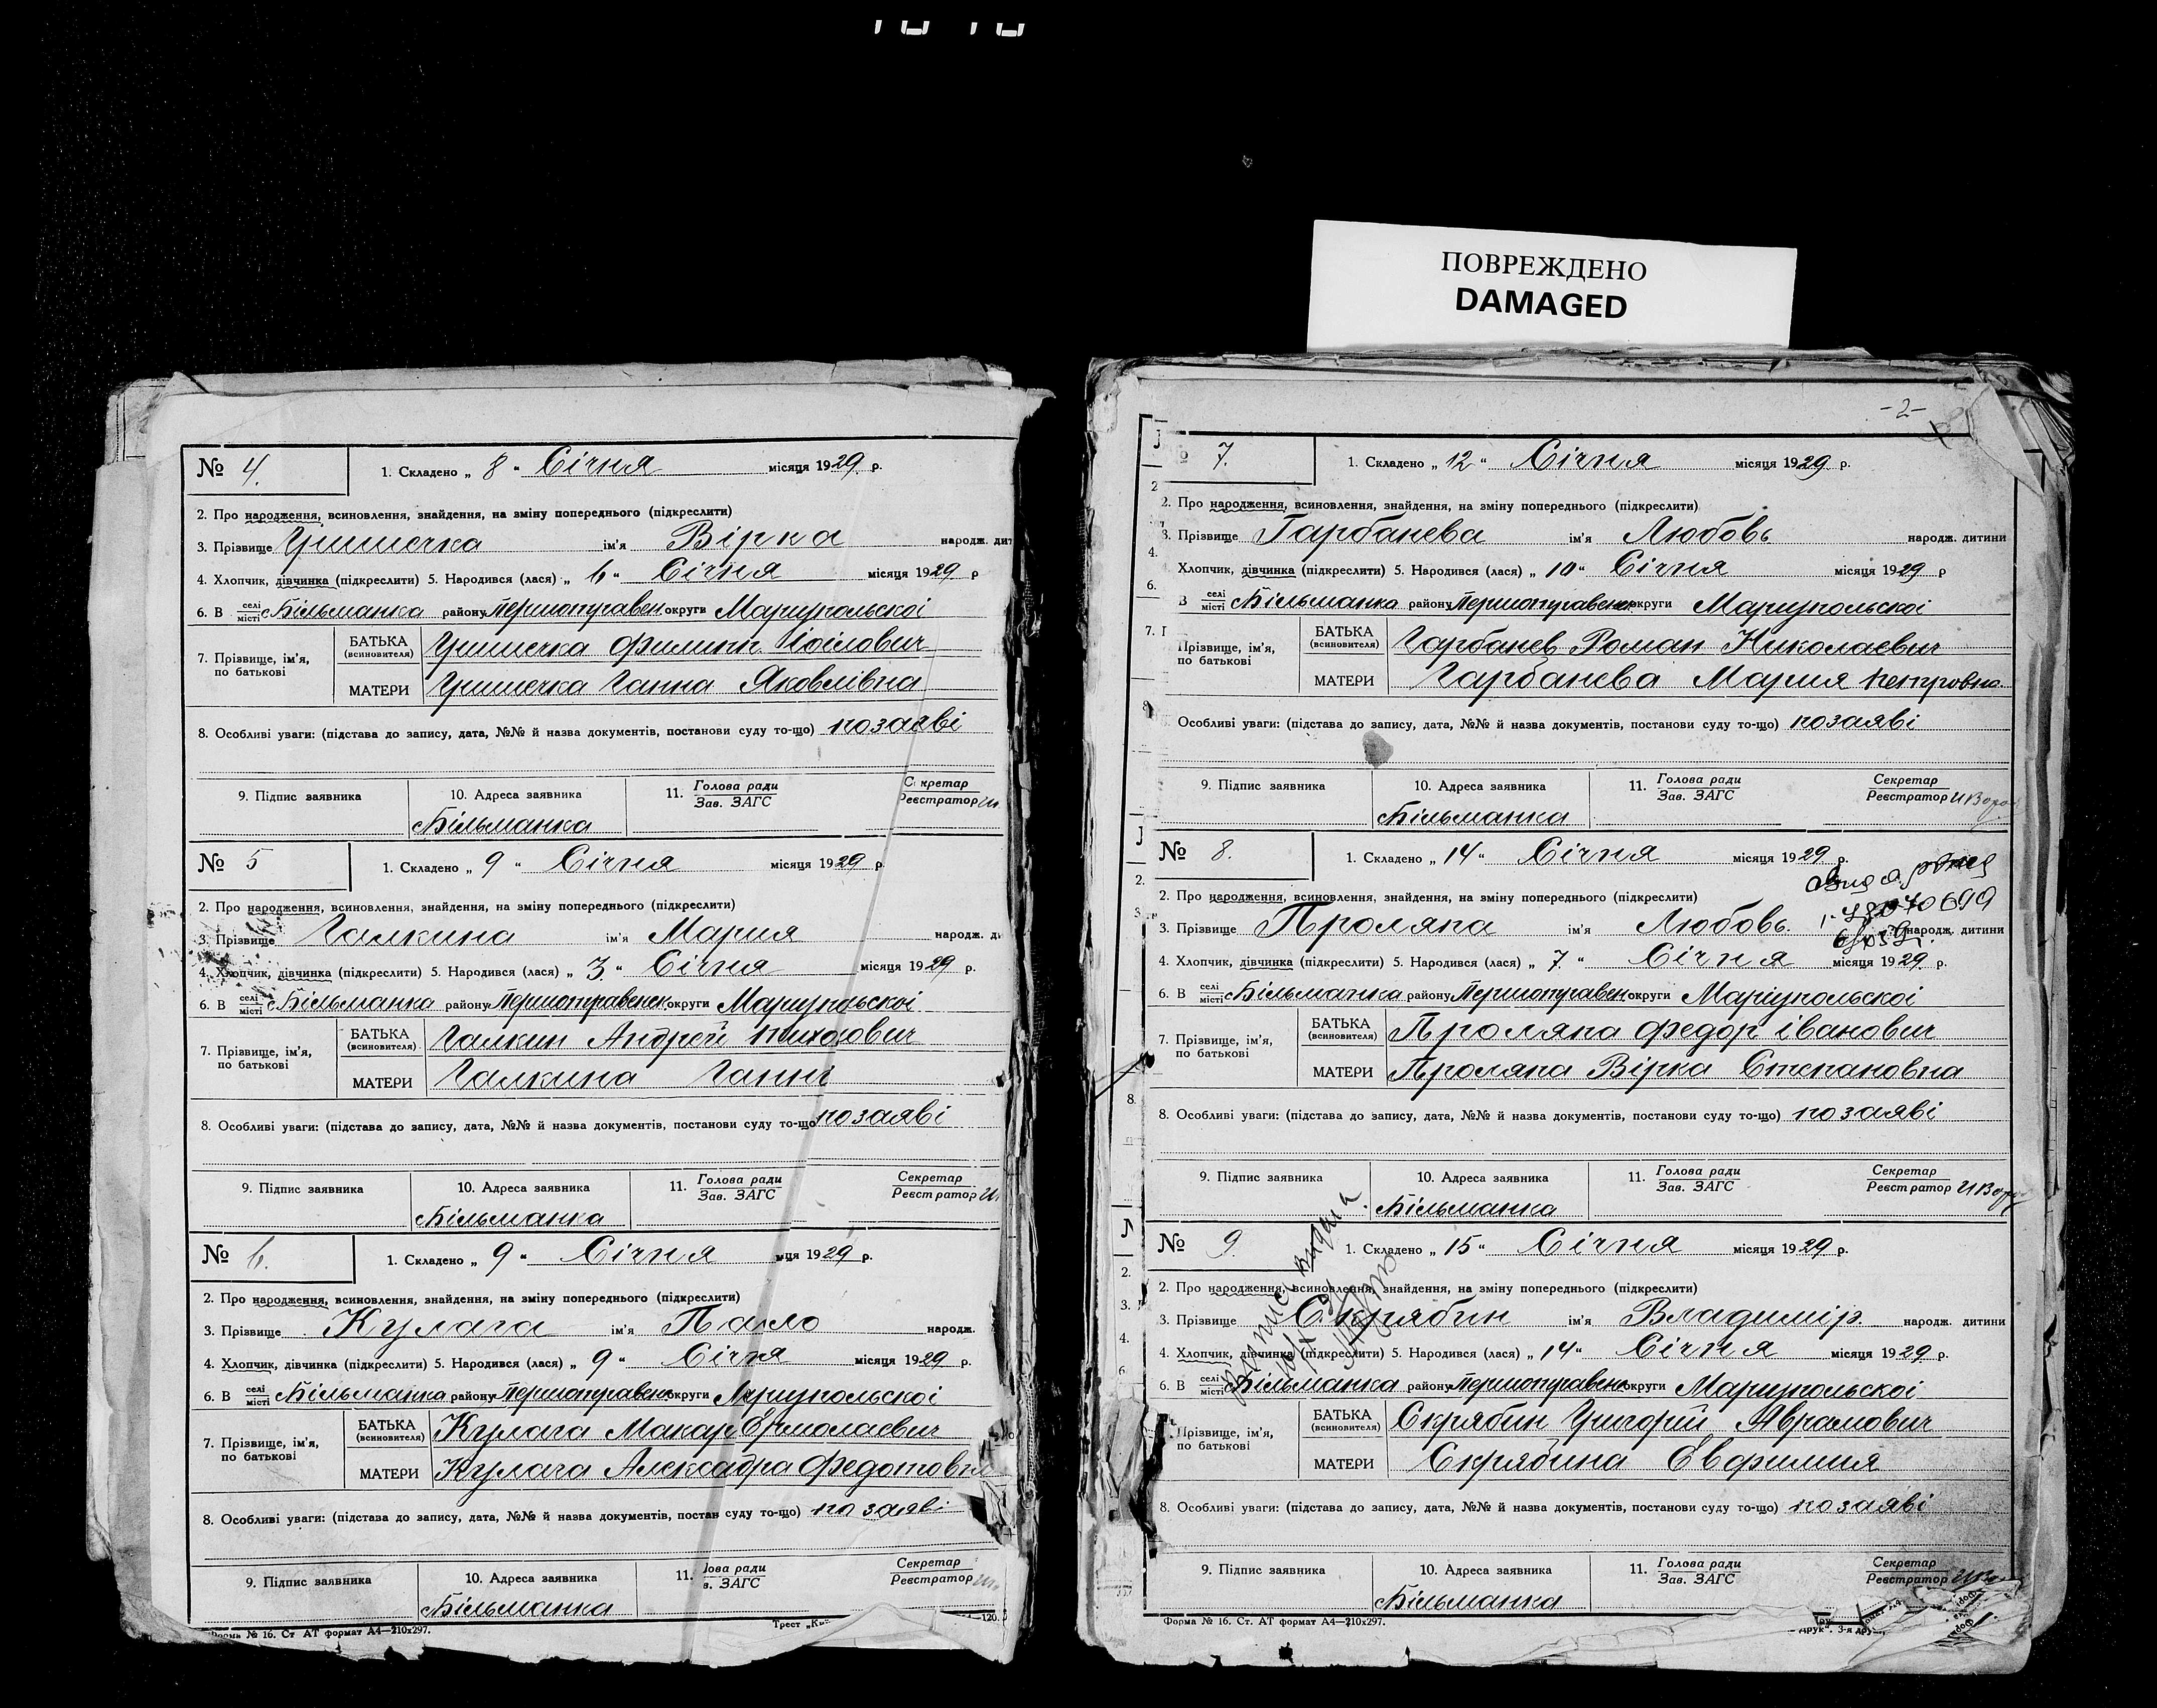 ПОВРЕЖДЕНО
DAMAGED
№ 4. 1. Складено „ 8 “ Січня місяця 1929 р.
2. Про народження, всиновлення, знайдення, на зміну попереднього (підкреслити)
3. Прізвище Гришечка ім'я Вірка народж. дит
4. Хлопчик, дівчинка (підкреслити) 5. Народився (лася) „ 6 “ Січня місяця 1929 р
6. В селі місті Більманка району Першоправен. округи Маріупольскоі
7. Прізвище, ім'я, по батькові БАТЬКА (всиновителя) Гришечка Филипп
МАТЕРИ Гришечка Ганна Яковлівна
8. Особливі уваги: (підстава до запису, дата, №№ й назва документів, постанови суду то-що) по заяві
9. Підпис заявника 10. Адреса заявника 11. Голова ради Зав. ЗАГС Секретар Реєстратор
Більманка
№ 5 1. Складено „ 9 “ Січня місяця 1929 р.
2. Про народження, всиновлення, знайдення, на зміну попереднього (підкреслити)
3. Прізвище Галкина ім'я Мария народж. ди
4. Хлопчик, дівчинка (підкреслити) 5. Народився (лася) „ 3 “ Січня місяця 1929 р.
6. В селі місті Більманка району Першоправенск. округи Маріупольскоі
7. Прізвище, ім'я, по батькові БАТЬКА (всиновителя) Галкин Андрей
МАТЕРИ Галкина Ганна
8. Особливі уваги: (підстава до запису, дата, №№ й назва документів, постанови суду то-що) по заяві
9. Підпис заявника 10. Адреса заявника 11. Голова ради Зав. ЗАГС Секретар Реєстратор
Більманка
№ 6. 1. Складено „ 9 “ Січня мця 1929 р.
2. Про народження, всиновлення, знайдення, на зміну попереднього (підкреслити)
3. Прізвище Кулага ім'я Павло народж.
4. Хлопчик, дівчинка (підкреслити) 5. Народився (лася) „ 9 “ Січня місяця 1929 р.
6. В селі місті Більманка району Першоправенс округи Маріупольскоі
7. Прізвище, ім'я, по батькові БАТЬКА (всиновителя) Кулага Макар Ермолаевич
МАТЕРИ Кулага Алексадра Федотовн
8. Особливі уваги: (підстава до запису, дата, №№ й назва документів, постан суду то-що) по заяві
9. Підпис заявника 10. Адреса заявника 11. лова ради в. ЗАГС Секретар Реєстратор
Більманка
Форма № 16. Ст АТ формат А4—210х297. Трест „Ки —120.
-2-
№ 7. 1. Складено „ 12 “ Січня місяця 1929 р.
2. Про народження, всиновлення, знайдення, на зміну попереднього (підкреслити)
3. Прізвище Гарбанева ім'я Любовь народж. дитини
4. Хлопчик, дівчинка (підкреслити) 5. Народився (лася) „ 10 “ Січня місяця 1929 р
6. В селі місті Більманка району Першоправенс округи Маріупольскоі
7. Прізвище, ім'я, по батькові БАТЬКА (всиновителя) Гарбанев Роман Николаевич
МАТЕРИ Гарбанева Мария Петровна
Особливі уваги: (підстава до запису, дата, №№ й назва документів, постанови суду то-що) по заяві
9. Підпис заявника 10. Адреса заявника 11. Голова ради Зав. ЗАГС Секретар Реєстратор
Більманка
№ 8. 1. Складено „ 14 “ Січня місяця 1929 р.
2. Про народження, всиновлення, знайдення, на зміну попереднього (підкреслити)
3. Прізвище Проляпа ім'я Любовь народж. дитини
4. Хлопчик, дівчинка (підкреслити) 5. Народився (лася) „ 7 “ Січня місяця 1929 р.
6. В селі місті Більманка району Першоправен. округи Маріупольскоі
7. Прізвище, ім'я, по батькові БАТЬКА (всиновителя) Проляпа Федор іванович
МАТЕРИ Проляпа Вірка Степановна
8. Особливі уваги: (підстава до запису, дата, №№ й назва документів, постанови суду то-що) по заяві
9. Підпис заявника 10. Адреса заявника 11. Голова ради Зав. ЗАГС Секретар Реєстратор
Більманка
№ 9. 1. Складено „ 15 “ Січня місяця 1929 р.
2. Про народження, всиновлення, знайдення, на зміну попереднього (підкреслити)
3. Прізвище Скрябин ім'я Владимір народж. дитини
4. Хлопчик, дівчинка (підкреслити) 5. Народився (лася) „ 14 “ Січня місяця 1929 р.
6. В селі місті Більманка району Першоправенс округи Маріупольскоі
Прізвище, ім'я, по батькові БАТЬКА (всиновителя) Скрябин Григорій Аврамович
МАТЕРИ Скрябина Евфимия
8. Особливі уваги: (підстава до запису, дата, №№ й назва документів, постанови суду то-що) по заяві
9. Підпис заявника 10. Адреса заявника 11. Голова ради Зав. ЗАГС Секретар Реєстратор
Більманка
Форма № 16. Ст. АТ формат А4—210х297.